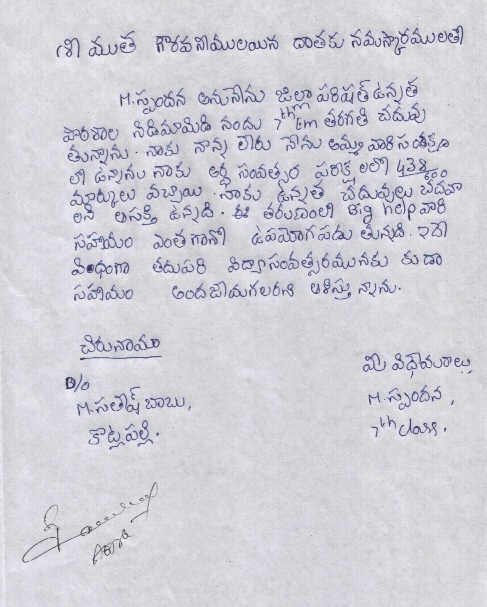 శ్రీ యుత గౌరవనీయులయిన దాతకు నమస్కారములతో
M. స్పందన అనునేను జిల్లా పరిషత్ ఉన్నత
పాఠశాల నిడిమామిడి నందు 7th Em తరగతి చదువు
తున్నాను. నాకు నాన్న లేరు నేను అమ్మ వారి సంరక్షణ
లో ఉన్నాను నాకు అర్ధ సంవత్సర పరీక్షలలో 438
మార్కులు వచ్చాయి. నాకు ఉన్నత చదువులు చదవా
లని ఆసక్తి ఉన్నది. ఈ తరుణంలో Big help వారి
సహాయం ఎంతగానో ఉపయోగపడుతున్నది. ఇదే
విధంగా తదుపరి విద్యాసంవత్సరమునకు కుడా
సహాయం అందజేయగలరని ఆశిస్తున్నాను.
చిరునామా
D/o
M. సతీష్ బాబు,
కొట్లపల్లి.
మీ విధేయురాలు
M. స్పందన,
7th class.